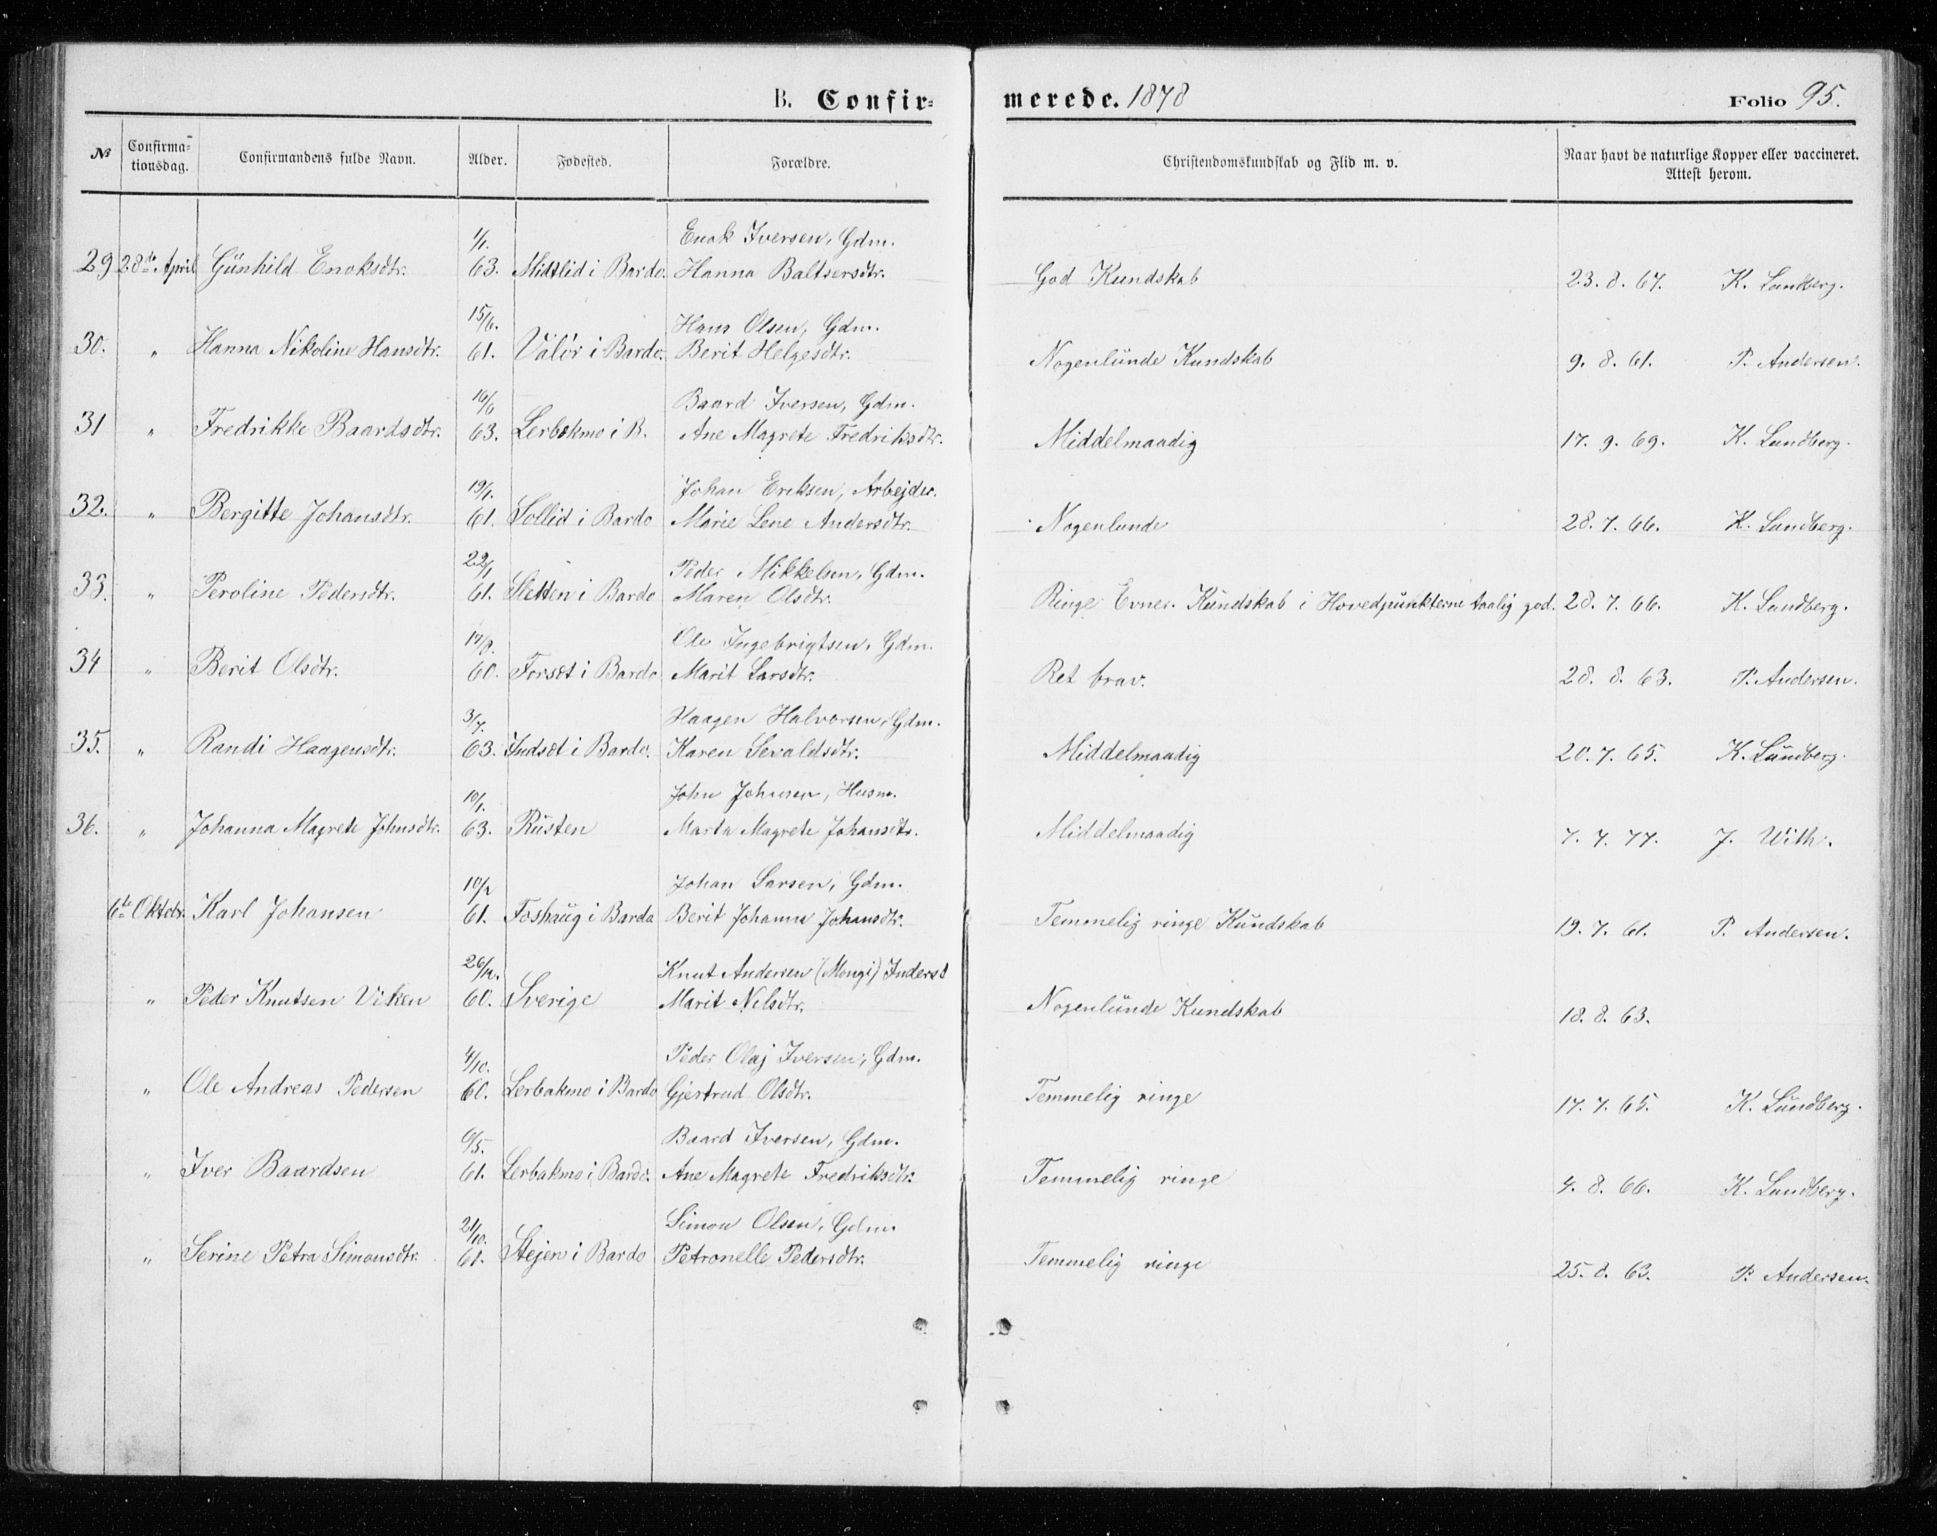 B. Confir= merede. 1878 Folio 95.
No Confirma= tionsdag. Confirmandens fulde Navn. Alder. Fødested. Forældre. Christendomskundskab og Flid m. v. Naar havt de naturlige Kopper eller vaccineret. Attest herom.
1/1. Enok Iversen, Gdm.
29 28de April Gunhild Enoksdtr. 63. Midtlid i Bardo. Hanna Baltsersdtr. God Kundskab 23. 8. 67. K. Lundberg.
15/6. Hans Olsen, Gdm.
30. " Hanna Nikoline Hansdtr. 61. Valør i Bardo. Berit Helgesdtr. Nogenlunde Kundskab 9. 8. 61. P. Andersen.
16/6 Baard Iversen, Gdm.
31 " Fredrikke Baardsdtr. 63. Lerbakmo i B. Ane Magrete Fredriksdtr. Middelmaadig 17. 9. 69. K. Lundberg.
19/1. Johan Eriksen, Arbejder.
32. " Bergitte Johansdtr. 61. Sollid i Bardo Marie Lene Andersdtr. Nogenlunde 28. 7. 66. K. Lundberg.
22/1 Peder Mikkelsen, Gdm.
33. " Peroline Pedersdtr. 61. Sletten i Bardo Maren Olsdtr. Ringe Evner. Kundskab i Hovedpunkterne taalig god. 28. 7. 66. K. Lundberg.
17/8. Ole Ingebrigtsen, Gdm.
34 " Berit Olsdtr. 60. Forset i Bardo Marit Larsdtr. Ret brav. 28. 8. 63. P. Andersen.
3/7. Haagen Halvorsen, Gdm.
35. " Randi Haagensdtr. 63. Indset i Bardo. Karen Sevaldsdtr. Middelmaadig 20. 7. 65. K. Lundberg.
10/1. John Johnsen, Husm.
36. " Johanna Magrete Johnsdtr. 63. Rusten Marta Magrete Johansdtr. Middelmaadig 7. 7. 77. J. With.
10/2 Johan Larsen, Gdm.
6te Oktobr. Karl Johansen 61. Foshaug i Bardo Berit Johanna Johansdtr. Temmelig ringe Kundskab 19. 7. 61. P. Andersen.
26/12. Knut Andersen (Mongi) Inderst
" Peder Knutsen Viken 60. Sverige Marit Nilsdtr. Nogenlunde Kundskab 18. 8. 63.
4/10. Peder Olaj Iversen, Gdm.
" Ole Andreas Pedersen 60. Lerbakmo i Bardo Gjertrud Olsdtr. Temmelig ringe 17. 7. 65. K. Lundberg.
6/5. Baard Iversen, Gdm.
" Iver Baardsen 61. Lerbakmo i Bardo. Ane Magrete Fredriksdtr. Temmelig ringe 4. 8. 66. K. Lundberg.
21/10. Simon Olsen, Gdm.
" Serine Petra Simonsdtr. 61. Stejen i Bardo Petronelle Pedersdtr. Temmelig ringe 25. 8. 63. P. Andersen.